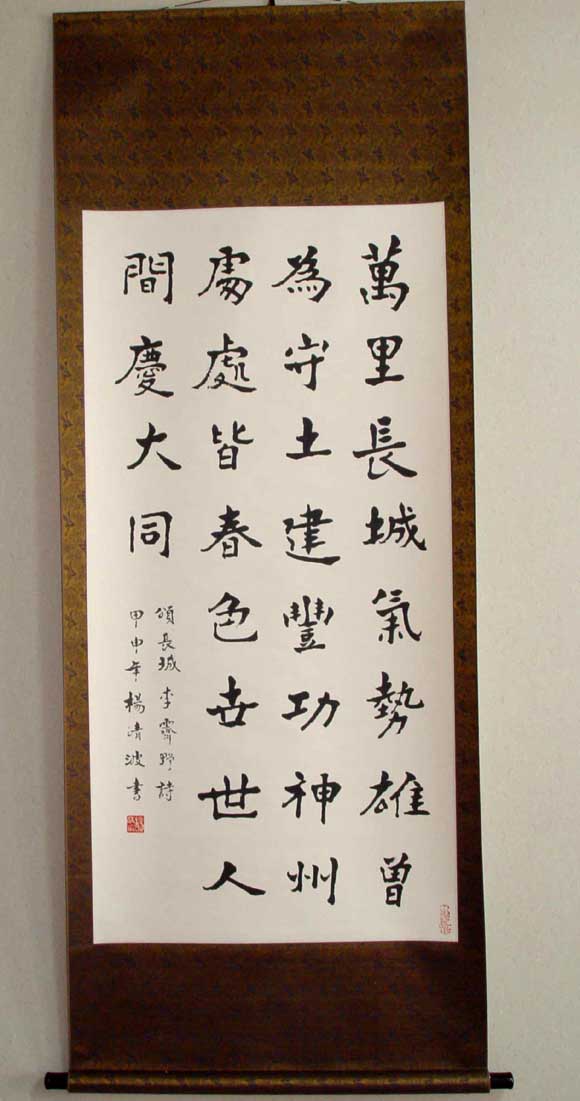 萬里長城氣勢雄曾
為守土建豐功神州
處處皆春色世世人
間慶大同
頌長城 李霽野詩
甲申年楊清波書